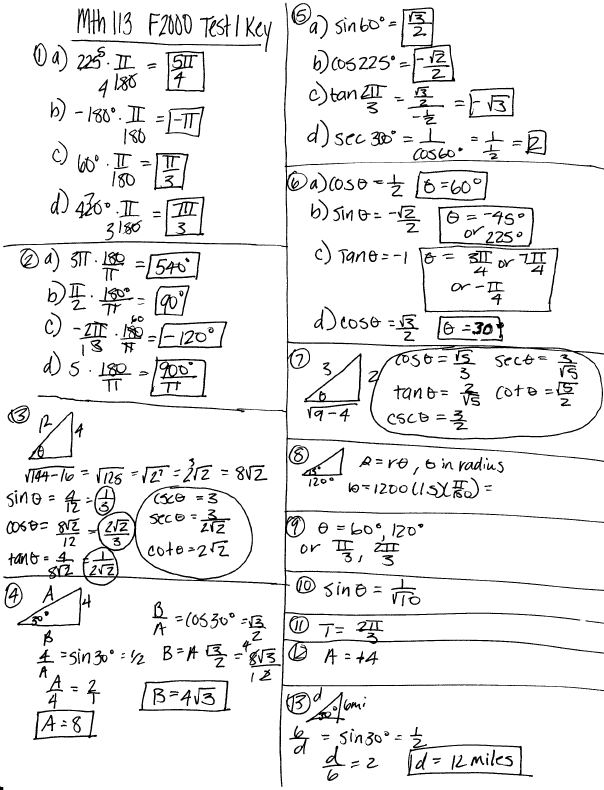 Mth 113 F2000 Test 1 Key
① a) 225° · π/180 = 5π/4
b) -180° · π/180 = -π
c) 60° · π/180 = π/3
d) 420° · π/180 = 7π/3
② a) 3π · 180/π = 540°
b) π/2 · 180°/π = 90°
c) -2π/3 · 180/π = -120°
d) 5 · 180/π = 900°/π
③ 12 4 θ
√144-16 = √128 = √2⁷ = 2³√2 = 8√2
sinθ = 4/12 = 1/3
cosθ = 8√2/12 = 2√2/3
tanθ = 4/8√2 = 1/2√2
cscθ = 3
secθ = 3/2√2
cotθ = 2√2
④ A 4 30° B
B/A = cos30° = √3/2
4/A = sin30° = 1/2
B = A √3/2 = 8√3/2
A/4 = 2/1
B = 4√3
A = 8
⑤ a) sin60° = √3/2
b) cos225° = -√2/2
c) tan 2π/3 = √3/2 / -1/2 = -√3
d) sec 300° = 1/cos60° = 1/½ = 2
⑥ a) cosθ = 1/2 θ = 60°
b) sinθ = -√2/2 θ = -45°
or 225°
c) Tanθ = -1 θ = 3π/4 or 7π/4
or -π/4
d) cosθ = √3/2 θ = 30°
⑦ 3 2 θ √9-4
cosθ = √5/3 secθ = 3/√5
tanθ = 2/√5 cotθ = √5/2
cscθ = 3/2
⑧ 1200
s = rθ, θ in radius
s = 1200(1.5)(π/180) =
⑨ θ = 60°, 120°
or π/3, 2π/3
⑩ sinθ = 1/√10
⑪ T = 2π/3
⑫ A = +4
⑬ d 30° 6mi
6/d = sin30° = 1/2
d/6 = 2
d = 12 miles